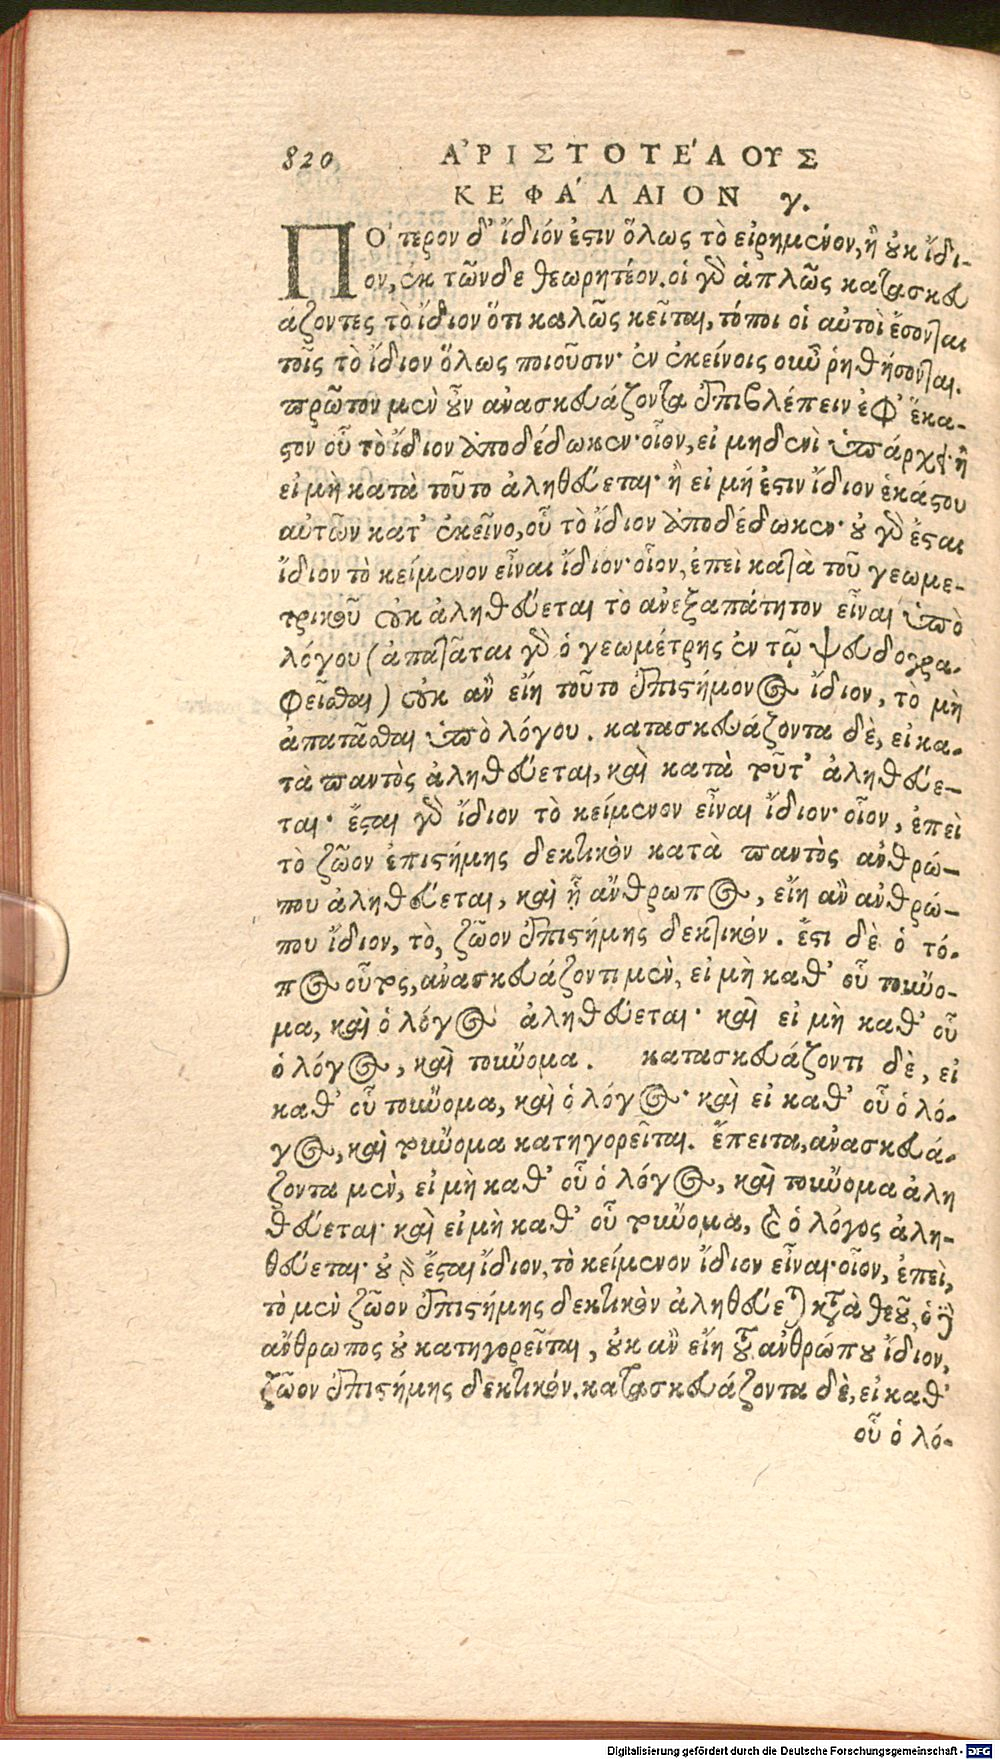 820 ἈΡΙΣΤΟΤΈΛΟΥΣ
ΚΕΦΆΛΑΙΟΝ γ.
ΠΌτερον δ' ἴδιόν ἐστιν ὅλως τὸ εἰρημένον, ἢ οὐκ ἴδι-
ον, ἐκ τῶνδε θεωρητέον. οἱ γὰρ ἁπλῶς κατασκευ
άζοντες τὸ ἴδιον ὅτι καλῶς κεῖται, τόποι οἱ αὐτοὶ ἔσονται
τοῖς τὸ ἴδιον ὅλως ποιοῦσιν· ἐν ἐκείνοις οὖν ῥηθήσονται.
πρῶτον μὲν οὖν ἀνασκευάζοντα ἐπιβλέπειν ἐφ' ἕκα-
στον οὗ τὸ ἴδιον ἀποδέδωκεν· οἷον, εἰ μηδενὶ ὑπάρχει· ἢ
εἰ μὴ κατὰ τοῦτο ἀληθεύεται· ἢ εἰ μή ἐστιν ἴδιον ἑκάστου
αὐτῶν κατ' ἐκεῖνο, οὗ τὸ ἴδιον ἀποδέδωκεν· οὐ γὰρ ἔσται
ἴδιον τὸ κείμενον εἶναι ἴδιον· οἷον, ἐπεὶ κατὰ τοῦ γεωμε-
τρικοῦ οὐκ ἀληθεύεται τὸ ἀνεξαπάτητον εἶναι ὑπὸ
λόγου (ἀπατᾶται γὰρ ὁ γεωμέτρης ἐν τῷ ψευδογρα-
φεῖσθαι) οὐκ ἂν εἴη τοῦτο ἐπιστήμονος ἴδιον, τὸ μὴ
ἀπατᾶσθαι ὑπὸ λόγου. κατασκευάζοντα δὲ, εἰ κα-
τὰ παντὸς ἀληθεύεται, καὶ κατὰ τοῦτ' ἀληθεύε-
ται· ἔσται γὰρ ἴδιον τὸ κείμενον εἶναι ἴδιον· οἷον, ἐπεὶ
τὸ ζῶον ἐπιστήμης δεκτικὸν κατὰ παντὸς ἀνθρώ-
που ἀληθεύεται, καὶ ᾗ ἄνθρωπος, εἴη ἂν ἀνθρώ-
που ἴδιον, τὸ, ζῶον ἐπιστήμης δεκτικόν. ἔστι δὲ ὁ τό-
πος οὗτος, ἀνασκευάζοντι μὲν, εἰ μὴ καθ' οὗ τοὔνο-
μα, καὶ ὁ λόγος ἀληθεύεται· καὶ εἰ μὴ καθ' οὗ
ὁ λόγος, καὶ τοὔνομα. κατασκευάζοντι δὲ, εἰ
καθ' οὗ τοὔνομα, καὶ ὁ λόγος· καὶ εἰ καθ' οὗ ὁ λό-
γος, καὶ τοὔνομα κατηγορεῖται. ἔπειτα, ἀνασκευά-
ζοντα μὲν, εἰ μὴ καθ' οὗ ὁ λόγος, καὶ τοὔνομα ἀλη
θεύεται· καὶ εἰ μὴ καθ' οὗ τοὔνομα, καὶ ὁ λόγος ἀλη-
θεύεται· οὐ γὰρ ἔσται ἴδιον, τὸ κείμενον ἴδιον εἶναι· οἷον, ἐπεὶ,
τὸ μὲν ζῶον ἐπιστήμης δεκτικὸν ἀληθεύεται κατὰ θεοῦ, ὁ δὲ
ἄνθρωπος οὐ κατηγορεῖται, οὐκ ἂν εἴη τοῦ ἀνθρώπου ἴδιον,
ζῶον ἐπιστήμης δεκτικόν. κατασκευάζοντα δὲ, εἰ καθ'
οὗ ὁ λό-
Digitalisierung gefördert durch die Deutsche Forschungsgemeinschaft - DFG